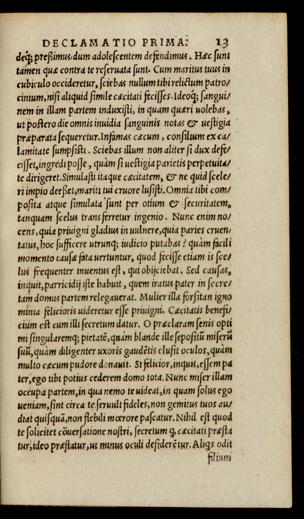 DECLAMATIO PRIMA. 13
deq́; preßimus dum adolescentem defendimus. Hæc sunt
tamen quæ contra te reseruata sunt. Cum maritus tuus in
cubiculo occideretur, sciebas nullum tibi relictum patro/
cinium, nisi aliquid simile cæcitati fecisses. Ideoq́; sangui/
nem in illam partem induxisti, in quam quæri uolebas,
ut postero die omnis inuidia sanguinis notas & uestigia
præparata sequeretur. Infimas cæcum, consilium ex ca/
lamitate sumpsisti. Sciebas illum non aliter si dux defe/
cisset, ingredi posse, quàm si uestigia parietis perpetuita/
te dirigeret. Simulasti itaque cæcitatem, & ne quid scele/
ri impio deesset, mariti tui cruore lusisti. Omnia tibi com/
posita atque simulata sunt per otium & securitatem,
tanquam scelus transferretur ingenio. Nunc enim no/
cens, quia priuigni gladius in uulnere, quia paries cruen/
tatus, hoc sufficere utrunq; iudicio putabas? quàm facili
momento causæ fata uertuntur, quod fecisse etiam is sce/
lus frequenter inuentus est, qui obijciebat. Sed causas,
inquit, parricidij iste habuit, quem iratus pater in secre/
tam domus partem relegauerat. Mulier illa forsitan igno
minia felicioris uideretur esse priuigni. Cæcitatis benefi/
cium est cum illi secretum datur. O præclaram senis opti
mi singularemq; pietatē, quàm blande ille sepositū miserū
suū, quàm diligenter uxoris gaudētis clusit oculos, quàm
multo cæcum pudore donauit. Si felicior, inquit, essem pa
ter, ego tibi potius cederem domo tota. Nunc miser illam
occupa partem, in qua nemo te uideat, in quam solus ego
ueniam, sint circa te seruuli fideles, non gemitus tuos au/
diat quisquā, non flebili mœrore pascatur. Nihil est quod
te solicitet cōuersatione nostri, secretum q. cæcitati præsta
tur, ideo præstatur, ut minus oculi desiderētur. Aliqs odit
filium